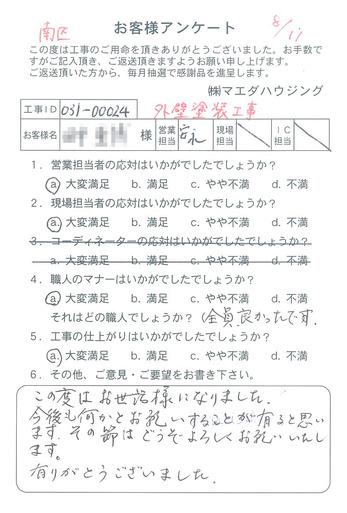 南区
お客様アンケート
8/17
この度は工事のご用命を頂きありがとうございました。お手数で
すがご記入頂き、ご返送頂きますようお願い申し上げます。
ご返送頂いた方から、毎月抽選で感謝品を進呈します。
㈱マエダハウジング
工事ID 031-00024 外壁塗装工事
お客様名 様 営業担当 安永 現場担当 IC担当
1．営業担当者の応対はいかがでしたでしょうか？
a. 大変満足 b. 満足 c. やや不満 d. 不満
2．現場担当者の応対はいかがでしたでしょうか？
a. 大変満足 b. 満足 c. やや不満 d. 不満
3．コーディネーターの応対はいかがでしたでしょうか？
a. 大変満足 b. 満足 c. やや不満 d. 不満
4．職人のマナーはいかがでしたでしょうか？
a. 大変満足 b. 満足 c. やや不満 d. 不満
それはどの職人でしょうか？（全員良かったです.
5．工事の仕上がりはいかがでしたでしょうか？
a. 大変満足 b. 満足 c. やや不満 d. 不満
6．その他、ご意見・ご要望をお書き下さい。
この度はお世話様になりました.
今後も何かとお願いすることが有ると思い
ます. その節はどうぞよろしくお願いいたし
ます。
有りがとうございました.